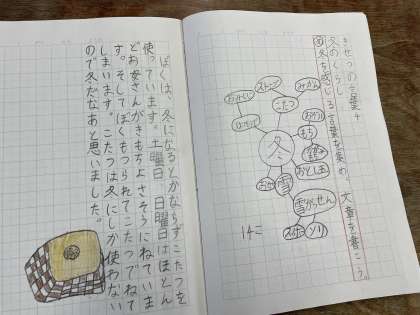 きせつの言葉4
冬のくらし
冬を感じる言葉を集め、文章を書こう。
みかん
ストーブ
こたつ
もち
冬
お年玉
雪
雪がっせん
スキー
ソリ
14こ
ぼくは、冬になるとかならずこたつを
使っています。土曜日、日曜日はほとん
どお母さんがきもちよさそうにねていま
す。そしてぼくもつられてこたつでねて
しまいます。こたつは冬にしか使わない
ので冬だなあと思いました。